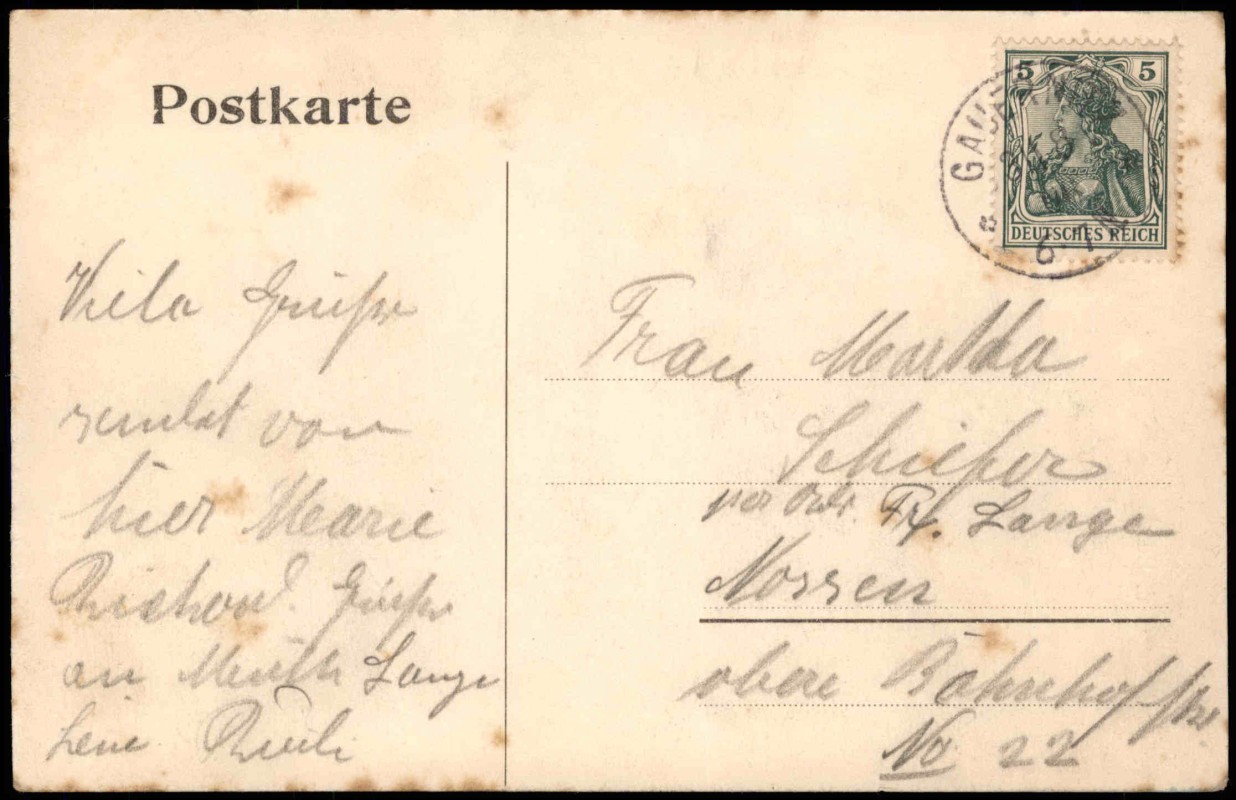 Postkarte
5 5
DEUTSCHES REICH
Viele Grüße
sendet von
hier Marie
Richard. Grüße
an Lange
Lene
Frau Martha
Schiefer
Fr. Lange
Nossen
obere Bahnhofstr
No 22